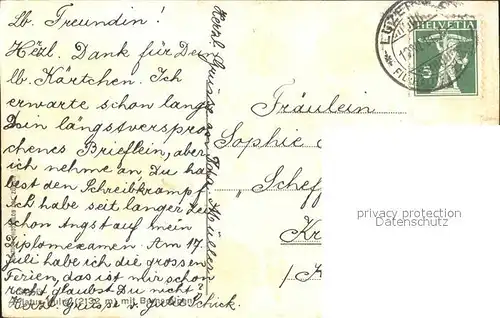 Lb. Freundin!
Herzl. Dank für Dein
lb. Kärtchen. Ich
erwarte schon lang
Dein längstverspro-
chenes Brieflein, aber
ich nehme an, Du ha-
best den Schreibkrampf.
Ich habe seit langer Zeit
schon Angst auf mein
Diplomexamen. Am 17.
Juli habe ich die grossen
Ferien, das ist mir schon
recht glaubst Du nicht?
Herzl. Grüsse v. Schick.
Herzl. Grüsse an Müller
HELVETIA
5
LUZERN
Fräulein
Sophie
"Scheff
Kr
privacy protection
Datenschutz
Pilatus-Kulm (2132 m) mit